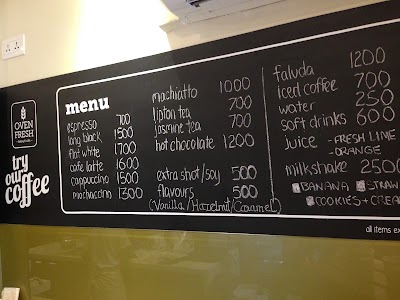 OVEN
FRESH
try
our
coffee
menu
espresso 700
long black 1500
flat white 1700
cafe latte 1600
cappuccino 1500
mochaccino 1300
machiatto 1000
lipton tea 700
jasmine tea 700
hot chocolate 1200
extra shot/soy 500
flavours 500
(Vanilla/Hazelnut/Caramel)
faluda 1200
iced coffee 700
water 250
soft drinks 600
juice - FRESH LIME
- ORANGE
milkshake 2500
BANANA STRAW
COOKIES + CREA
all items ex